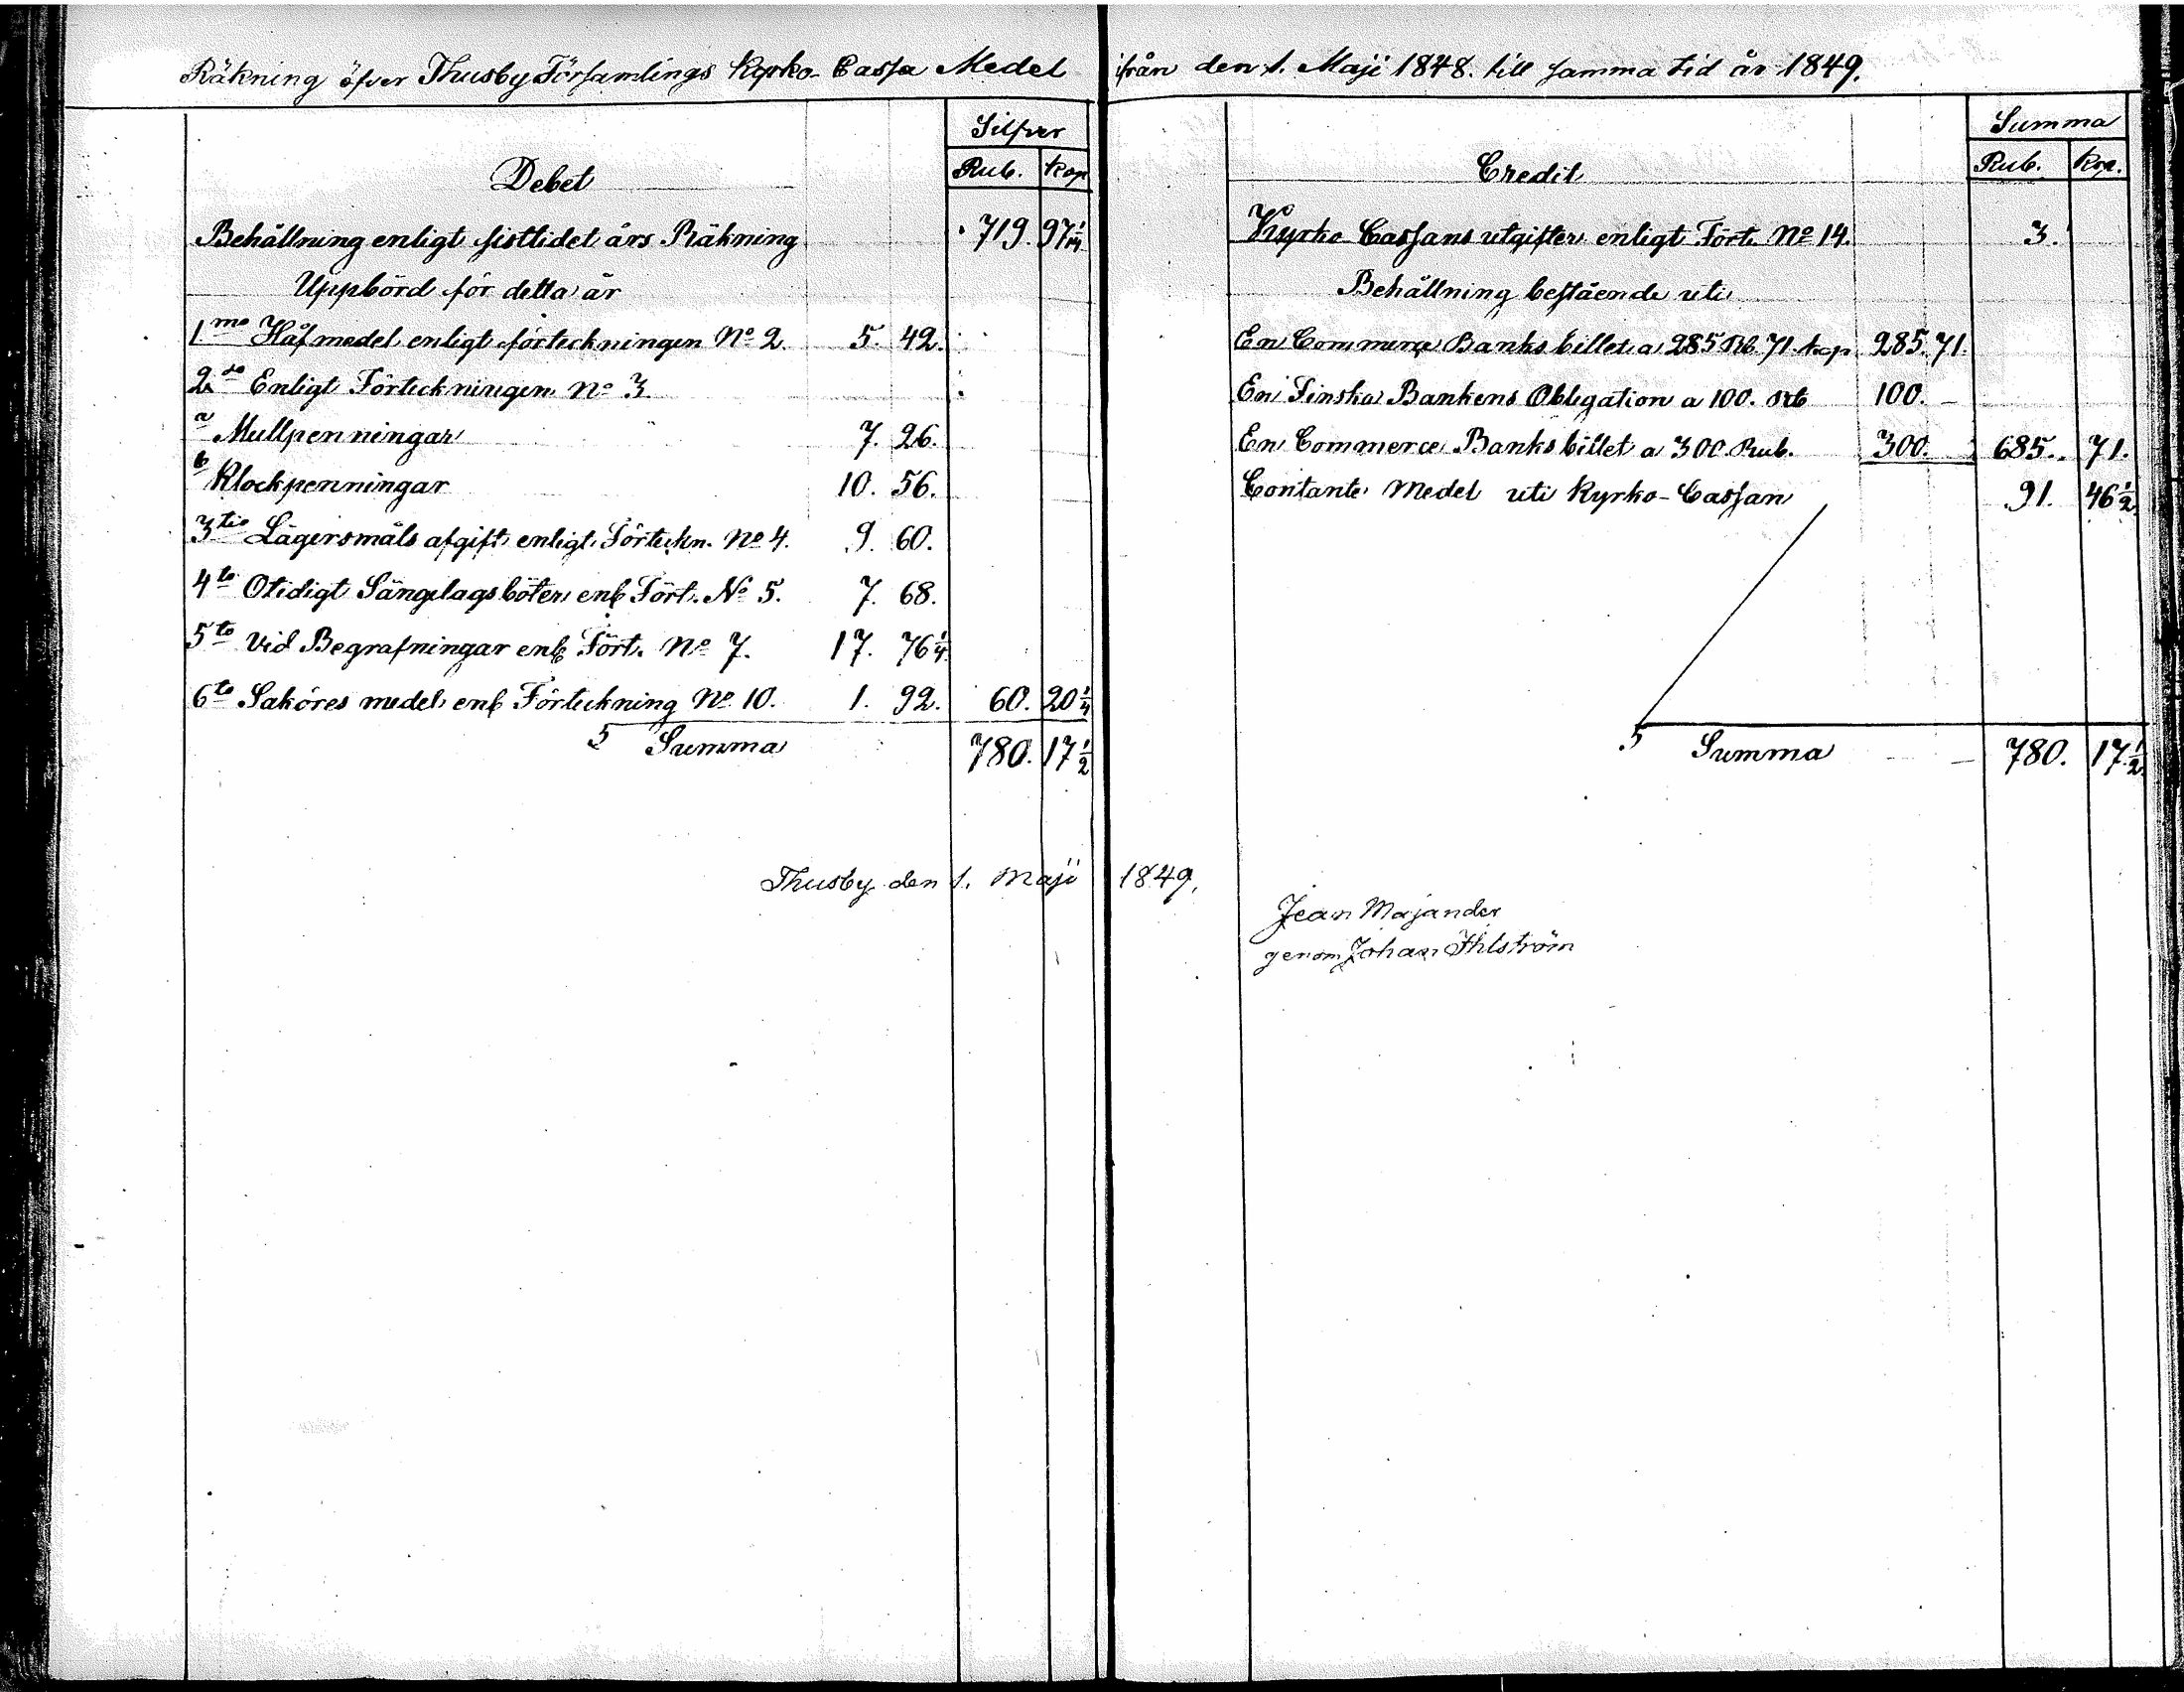 Räkning öfver Thusby Församlings Kyrko-Cassa Medel ifrån den 1. Maji 1848. till samma tid år 1849.
Silfver
Debet Rub. Kop
Behållning enligt sistlidet års Räkning 719. 97 1/4
Uppbörd för detta år
1mo Håfmedel enligt förteckningen No 2. 5. 42.
2do Enligt Förteckningen No 3
a Mullpenningar 7. 26.
b Klockpenningar 10. 56.
3tio Lägersmåls afgift enligt Förteckn. No 4. 9. 60.
4to Otidigt Sängelags böter enl Fört. No 5. 7. 68.
5to Vid Begrafningar enl Fört. No 7. 17. 76 1/4
6to Saköres medel enl Förteckning No 10. 1. 92. 60. 20 1/4
Summa 780. 17 1/2
Summa
Credit Rub. Kop.
Kyrko Cassans utgifter enligt Fört. No 14. 3.
Behållning bestående uti
En Commerce Banks billet a 285 Rb. 71 kop 285. 71.
En Finska Bankens Obligation a 100. Rb 100. —
En Commerce Banks billet a 300 Rub. 300. 685. 71.
Contante Medel uti Kyrko-Cassan 91. 46 1/2
Summa 780. 17 1/2
Thusby den 1. Maji 1849.
Jean Majander
genom Johan Ihlström